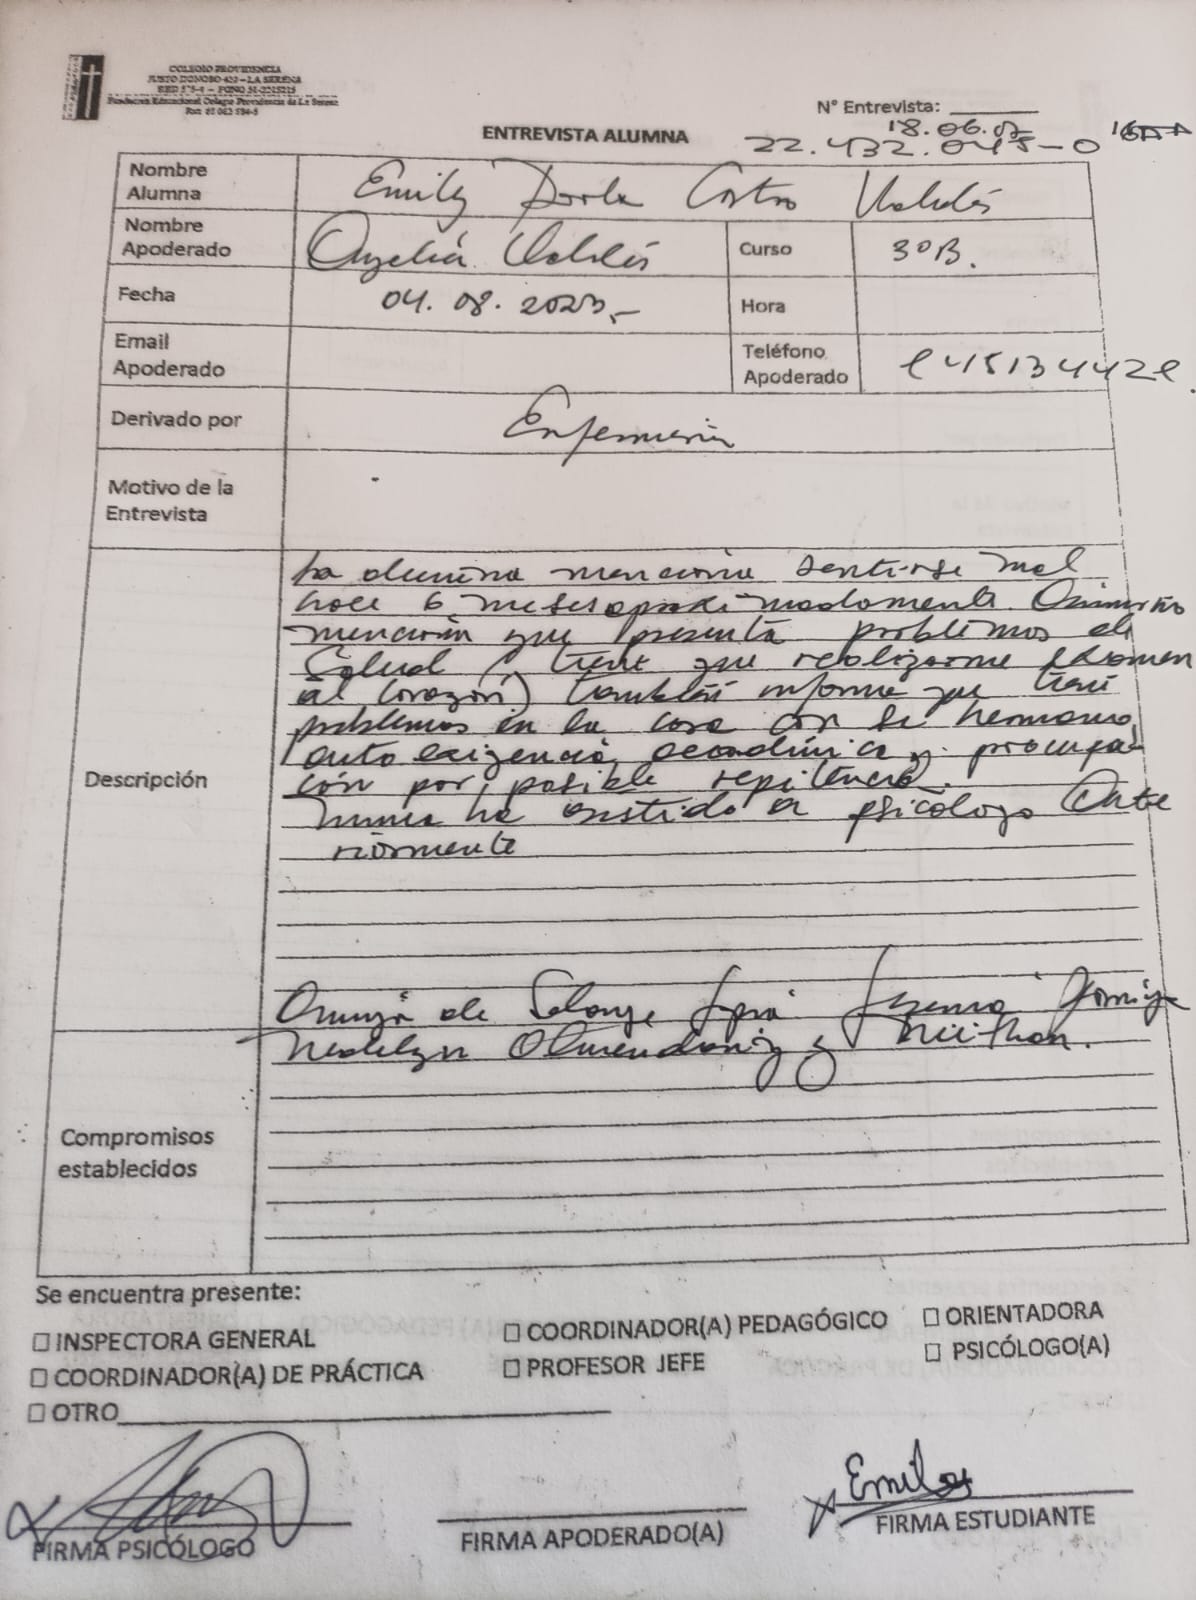 COLEGIO PROVIDENCIA
JUSTO DONOSO 420 – LA SERENA
RBD 575-4 – FONO 51-2225215
Fundación Educacional Colegio Providencia de La Serena
N° Entrevista:
18.06.07
ENTREVISTA ALUMNA
22.432.045-0
Nombre Alumna Emily Castro Valdés
Nombre Apoderado Valdés Curso 3ºB.
Fecha 04.08.2023.- Hora
Email Apoderado Teléfono Apoderado
Derivado por Enfermería
Motivo de la Entrevista
Descripción
La alumna menciona sentirse mal
hace 6 meses aproximadamente. Asimismo
menciona que presenta problemas de
salud (tiene que realizarme examen
al corazón) también informa que tiene
problemas en la casa con su hermana,
autoexigencia académica y preocupa-
ción por posible repitencia.
Nunca ha asistido a psicólogo ante
riormente
Amiga de Solange
y
Compromisos establecidos
Se encuentra presente:
☐ INSPECTORA GENERAL ☐ COORDINADOR(A) PEDAGÓGICO ☐ ORIENTADORA
☐ COORDINADOR(A) DE PRÁCTICA ☐ PROFESOR JEFE ☐ PSICÓLOGO(A)
☐ OTRO
Emily
FIRMA PSICÓLOGO FIRMA APODERADO(A) FIRMA ESTUDIANTE